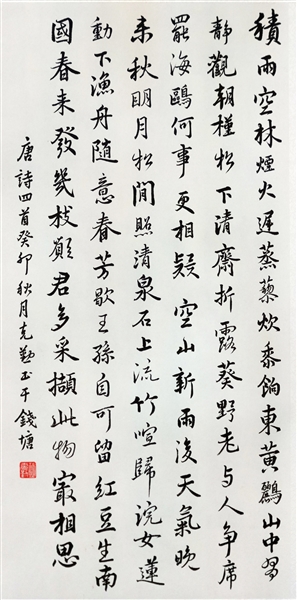 積雨空林煙火遲蒸藜炊黍餉東黃鸝山中習
靜觀朝槿松下清齋折露葵野老与人爭席
罷海鷗何事更相疑空山新雨後天氣晚
来秋明月松間照清泉石上流竹喧歸浣女蓮
動下漁舟隨意春芳歇王孫自可留紅豆生南
國春来發幾枝願君多采擷此物寂相思
唐詩四首癸卯秋月克勤书于錢塘